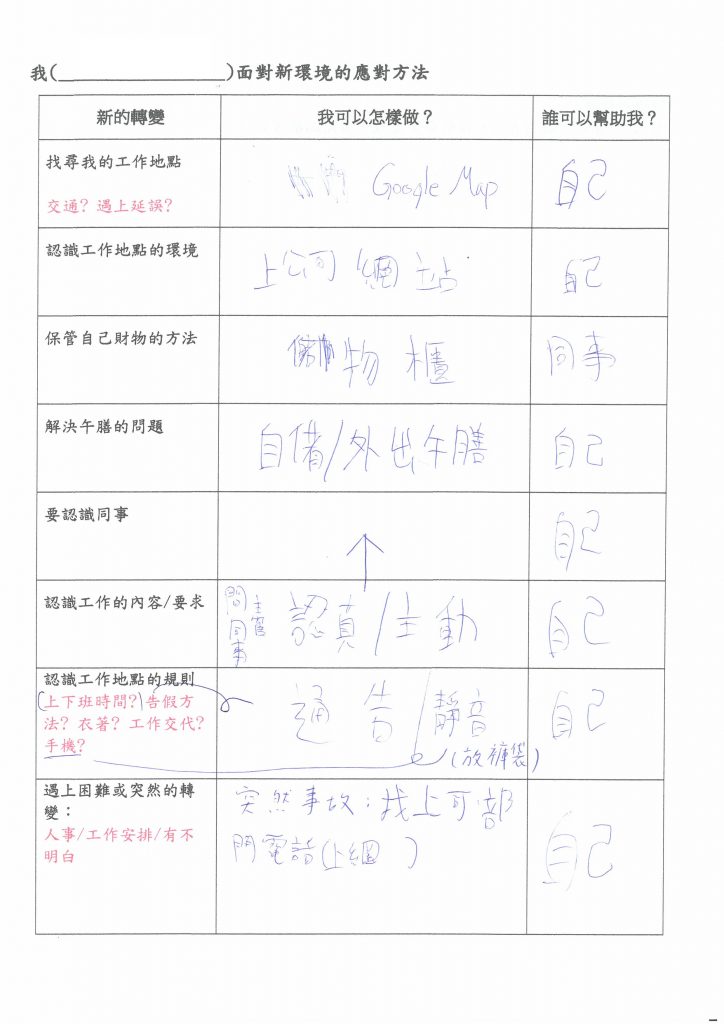 我(________________)面對新環境的應對方法
新的轉變
我可以怎樣做？
誰可以幫助我？
找尋我的工作地點
交通？遇上延誤？
Google Map
自己
認識工作地點的環境
上公司網站
自己
保管自己財物的方法
物櫃
同事
解決午膳的問題
自備/外出午膳
自己
要認識同事
↑
自己
認識工作的內容/要求
問主管
同事
認真/主動
自己
認識工作地點的規則
(上下班時間？)告假方
法？衣著？工作交代？
手機？
通告/靜音
(放褲袋)
自己
遇上困難或突然的轉
變：
人事/工作安排/有不
明白
突然事故：找上司部
門電話(上網 )
自己